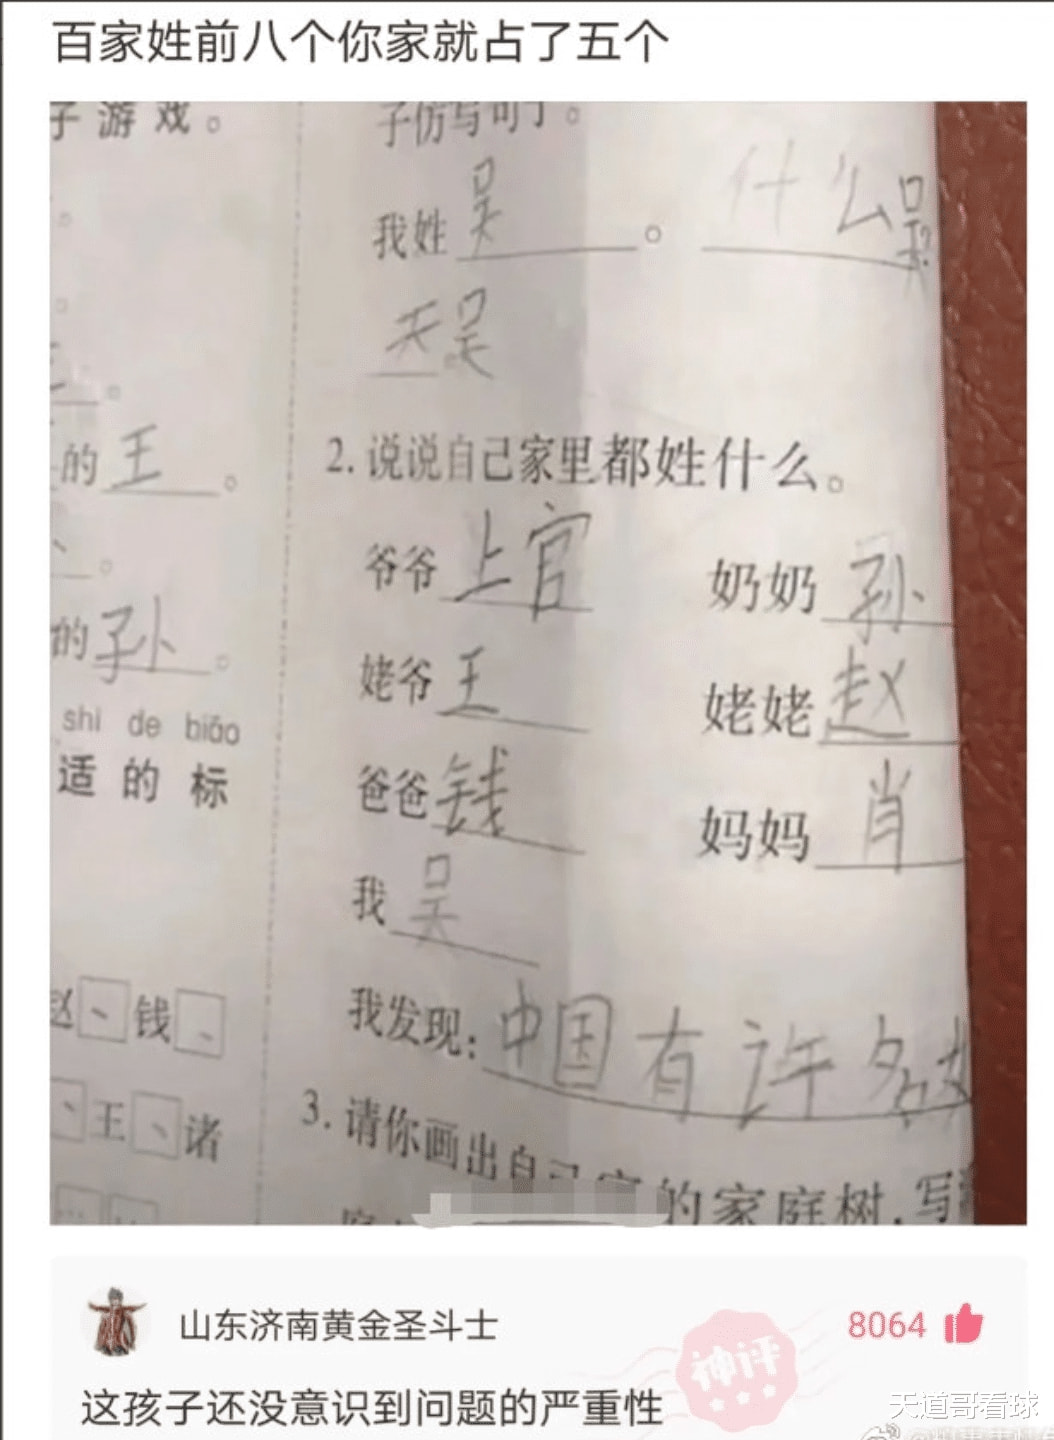 百家姓前八个你家就占了五个
子游戏。
子仿写句子。
我姓吴。什么吴?
天吴
的王。
2.说说自己家里都姓什么。
爷爷上官 奶奶孙
的孙。
姥爷王 姥姥赵
shì de biāo
适的标
爸爸钱 妈妈肖
我吴
赵、钱、
我发现:中国有许多
、王、诸
3.请你画出自己家的家庭树,写
山东济南黄金圣斗士
8064
神评
这孩子还没意识到问题的严重性
天道哥看球